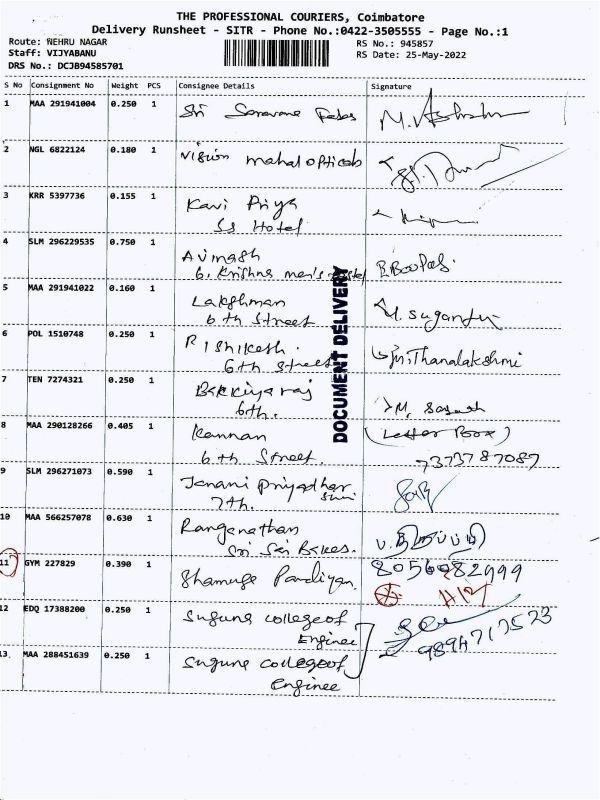 THE PROFESSIONAL COURIERS, Coimbatore
Delivery Runsheet - SITR - Phone No.:0422-3505555 - Page No.:1
Route: NEHRU NAGAR
RS No.: 945857
Staff: VIJYABANU
RS Date: 25-May-2022
DRS No.: DCJB94585701
S No Consignment No Weight PCS Consignee Details Signature
1 MAA 291941004 0.250 1 Sri Saravana
2 NGL 6822124 0.180 1 Vision mahal opticals
3 KRR 5397736 0.155 1 Kavi Priya
SS Hotel
4 SLM 296229535 0.750 1 Avinash
6. Krishna men's
5 MAA 291941022 0.160 1 Lakshman
6th Street
6 POL 1510748 0.250 1 Rishikesh.
6th Street
7 TEN 7274321 0.250 1 Bakkiyaraj
6th.
M.
8 MAA 290128266 0.405 1 Kannan (Letter Box)
6th Street. 7373787087
9 SLM 296271073 0.590 1 Janani Priyadhar
7th. sini
10 MAA 566257078 0.630 1 Ranganathan
Sri Sai
11 GYM 227829 0.390 1 Shamuga Pandiyan. 8056082999
12 EDQ 17388200 0.250 1 Suguna college of
Enginee 9894717523
13. MAA 288451639 0.250 1 Suguna college of
Enginee
DOCUMENT DELIVERY